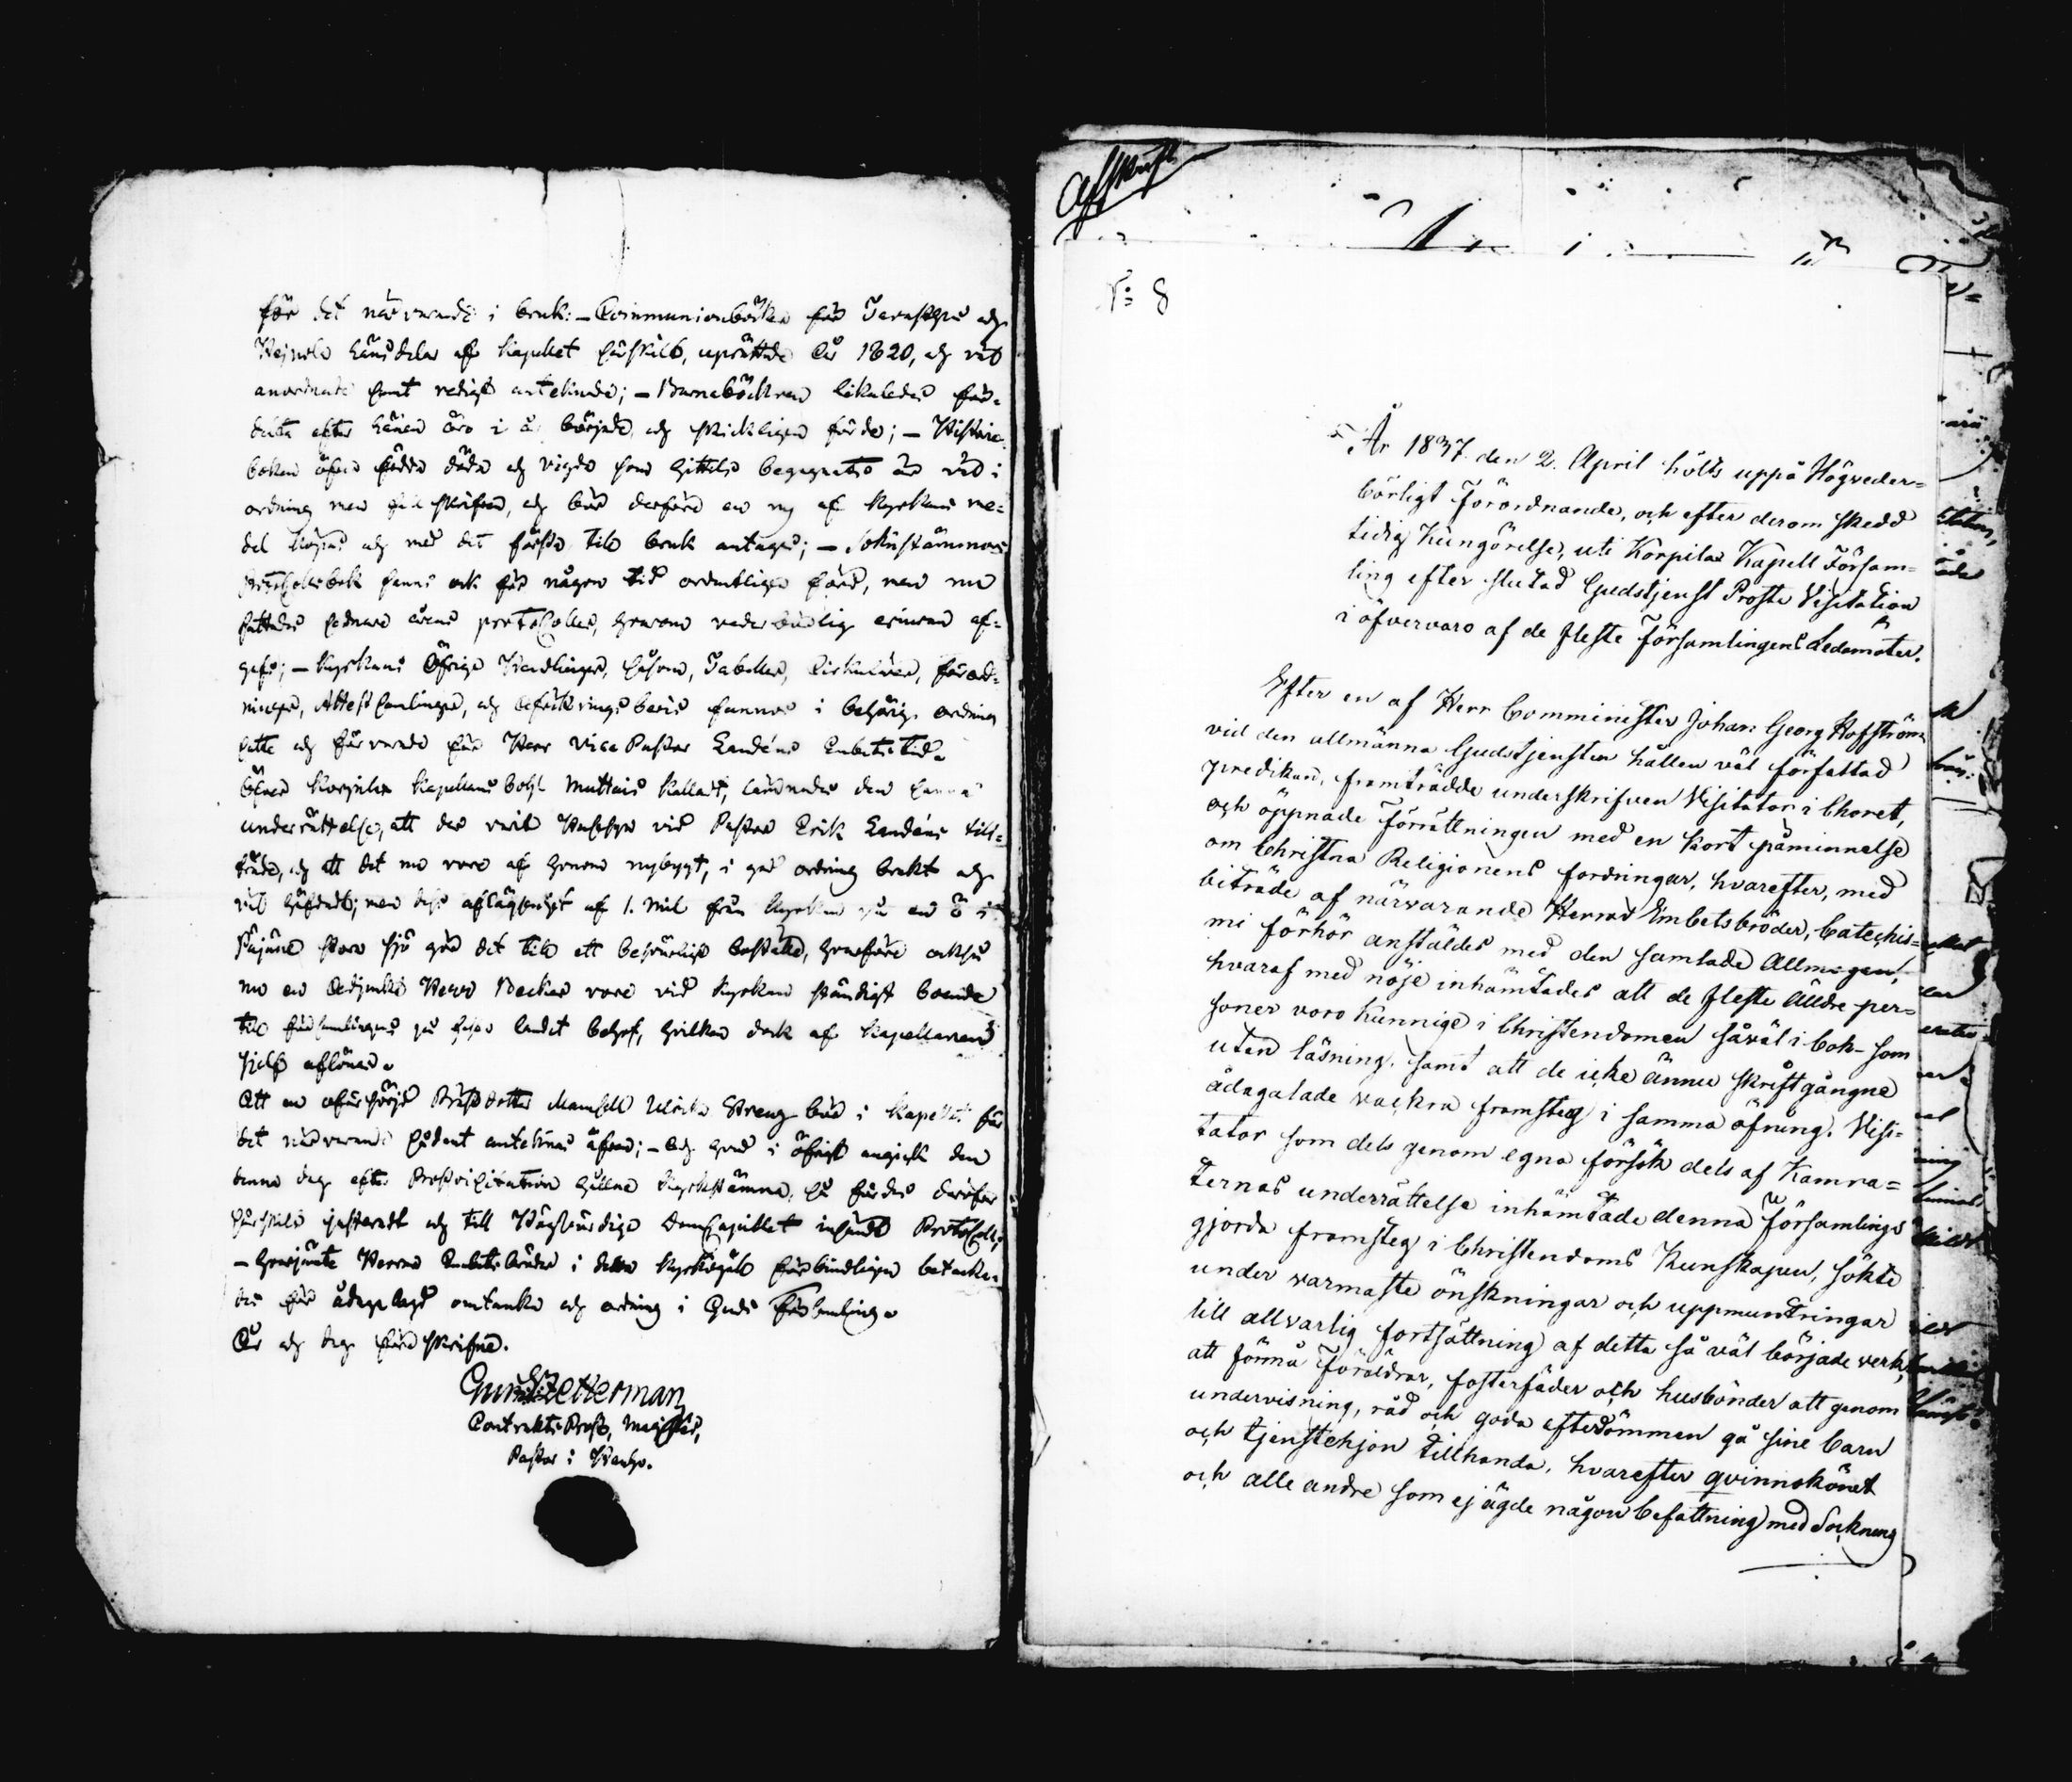 för det närvarande i bruk: – Communionboken för Taraskypä och
Heinola länsdelar af Kapellet särskild, uprättade År 1820, och väl
anordnade samt redigt antecknade; – Barnaböckren likaledes för
detta efter länen äro i år började och skickligen förde; – Historie
boken öfver födda döda och vigde som hittils begagnats är väl i
ordning men full skrifven, och bör derföre en ny af Kyrkans me=
del köpas och med det första till bruk antagas; – Sockenstämmo
Protocollsbok fanns ock för någon tid ordentligen förd, men nu
saknades sednare årens protocoller, hvarom vederbörlig erinran af=
gafs; – Kyrkans Öfrige Handlingar, såsom, Tabeller, Cirkulairer, förord=
ningar, Attest samlingar, och befrielsebevis funnos i behörig ordning
satte och förvarade för Herr Vice Pastor Landéns Embetstid.
Öfver Korpilax Kapellans Bohl Muttais kalladt, lämnades den samma
underrättelse, att der varit Husesyn vid Pastor Erik Landéns till=
träde, och att det nu vore af honom nybygt, i god ordning brukt och
väl häfdadt; men dess aflägsenhet af 1. mil från Kyrkan på en Ö i
Päijäne stora sjö gör det till ett besvärligt boställe, hvarföre också
nu en Adjunkt Herr Becker vore vid Kyrkan ständigt boende
till församlingens på fasta landet behof, hvilken dock af Kapellanen
sjelf aflönas.
Att en oförsörjd Prästdotter Mamsell Ulrika Streng bor i Kapellet för
det närvarande sådant antecknas äfven; – Och hvad i öfrigt angick den
denna dag efter Prostvisitation hållna Kyrkostämma, så fördes deröfver
särskildt justeradt och till Högvördiga DomCapitlet insändt Protocoll;
– Hvarjämte Herrar Embetsbröder i detta Kyrkogäll förbindligen betacka=
des för ådagalagd omtanka och ordning i Guds Församling.
År och dag förr skrifne.
Gust: Zetterman
Contrakts Prost, Magister,
Pastor i Hauho.
Afskrift
N:o 8
År 1837 den 2. April hölts uppå Högveder=
börligt Förordnande, och efter derom skedd
tidig Kungörelse, uti Korpilax Kapell Försam=
ling efter slutad Gudstjenst Proste Visitation
i öfvervaro af de fleste Församlingens Ledamöter.
Efter en af Herr Comminister Johan Georg Hofström
vid den allmänna Gudstjensten hållen väl författad
predikan, framträdde underskrifven Visitator i Choret,
och öppnade Förrättningen med en kort påminnelse
om Christna Religionens fordringar, hvarefter, med
biträde af närvarande Herrar Embetsbröder, Catechis=
mi förhör anställdes med den samlade Allmogen,
hvaraf med nöje inhämtades att de fleste äldre per=
soner voro kunnige i Christendomen såväl i bok- som
utan läsning, samt att de icke ännu skriftgångne
ådagalade vackra framsteg i samma öfning. Visi=
tator som dels genom egna försök dels af Kamra=
ternas underrättelse inhämtade denna Församlings
gjorda framsteg i Christendoms Kunskapen, sökte
under varmaste önskningar och uppmuntringar
till allvarlig fortsättning af detta så väl började verk,
att förmå Föräldrar, fosterfäder och husbönder att genom
undervisning, råd och goda efterdömmen gå sine barn
och tjenstehjon tillhanda, hvarefter qvinnokönet
och alle andre som ej ägde någon befattning med Sockneng